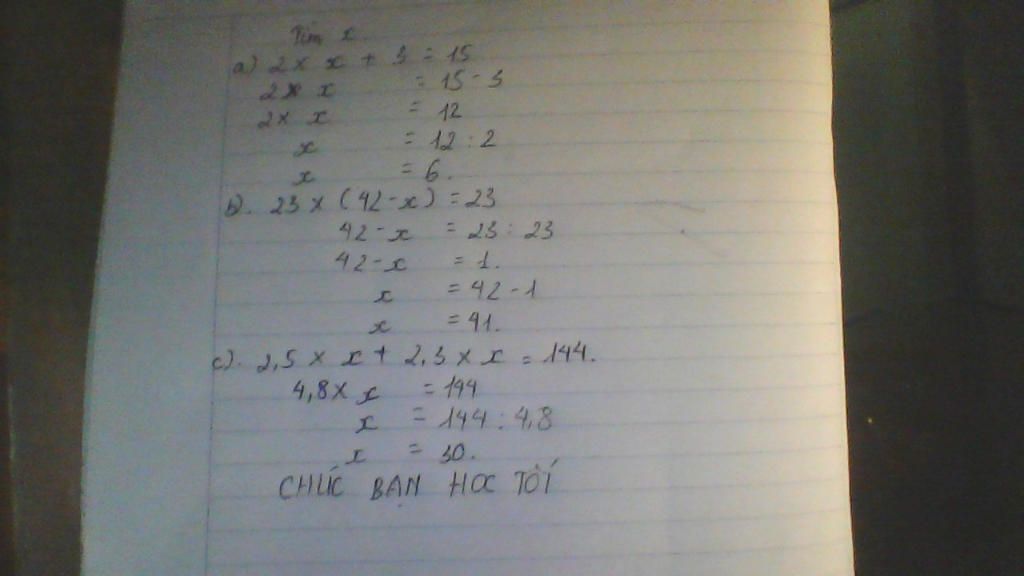 Tìm x.
a) 2 × x + 3 = 15
2 × x = 15 - 3
2 × x = 12
x = 12 : 2
x = 6.
b). 23 × (42 - x) = 23
42 - x = 23 : 23
42 - x = 1.
x = 42 - 1
x = 41.
c). 2,5 × x + 2,3 × x = 144.
4,8 × x = 144
x = 144 : 4,8
x = 30.
CHÚC BẠN HOC TỐT